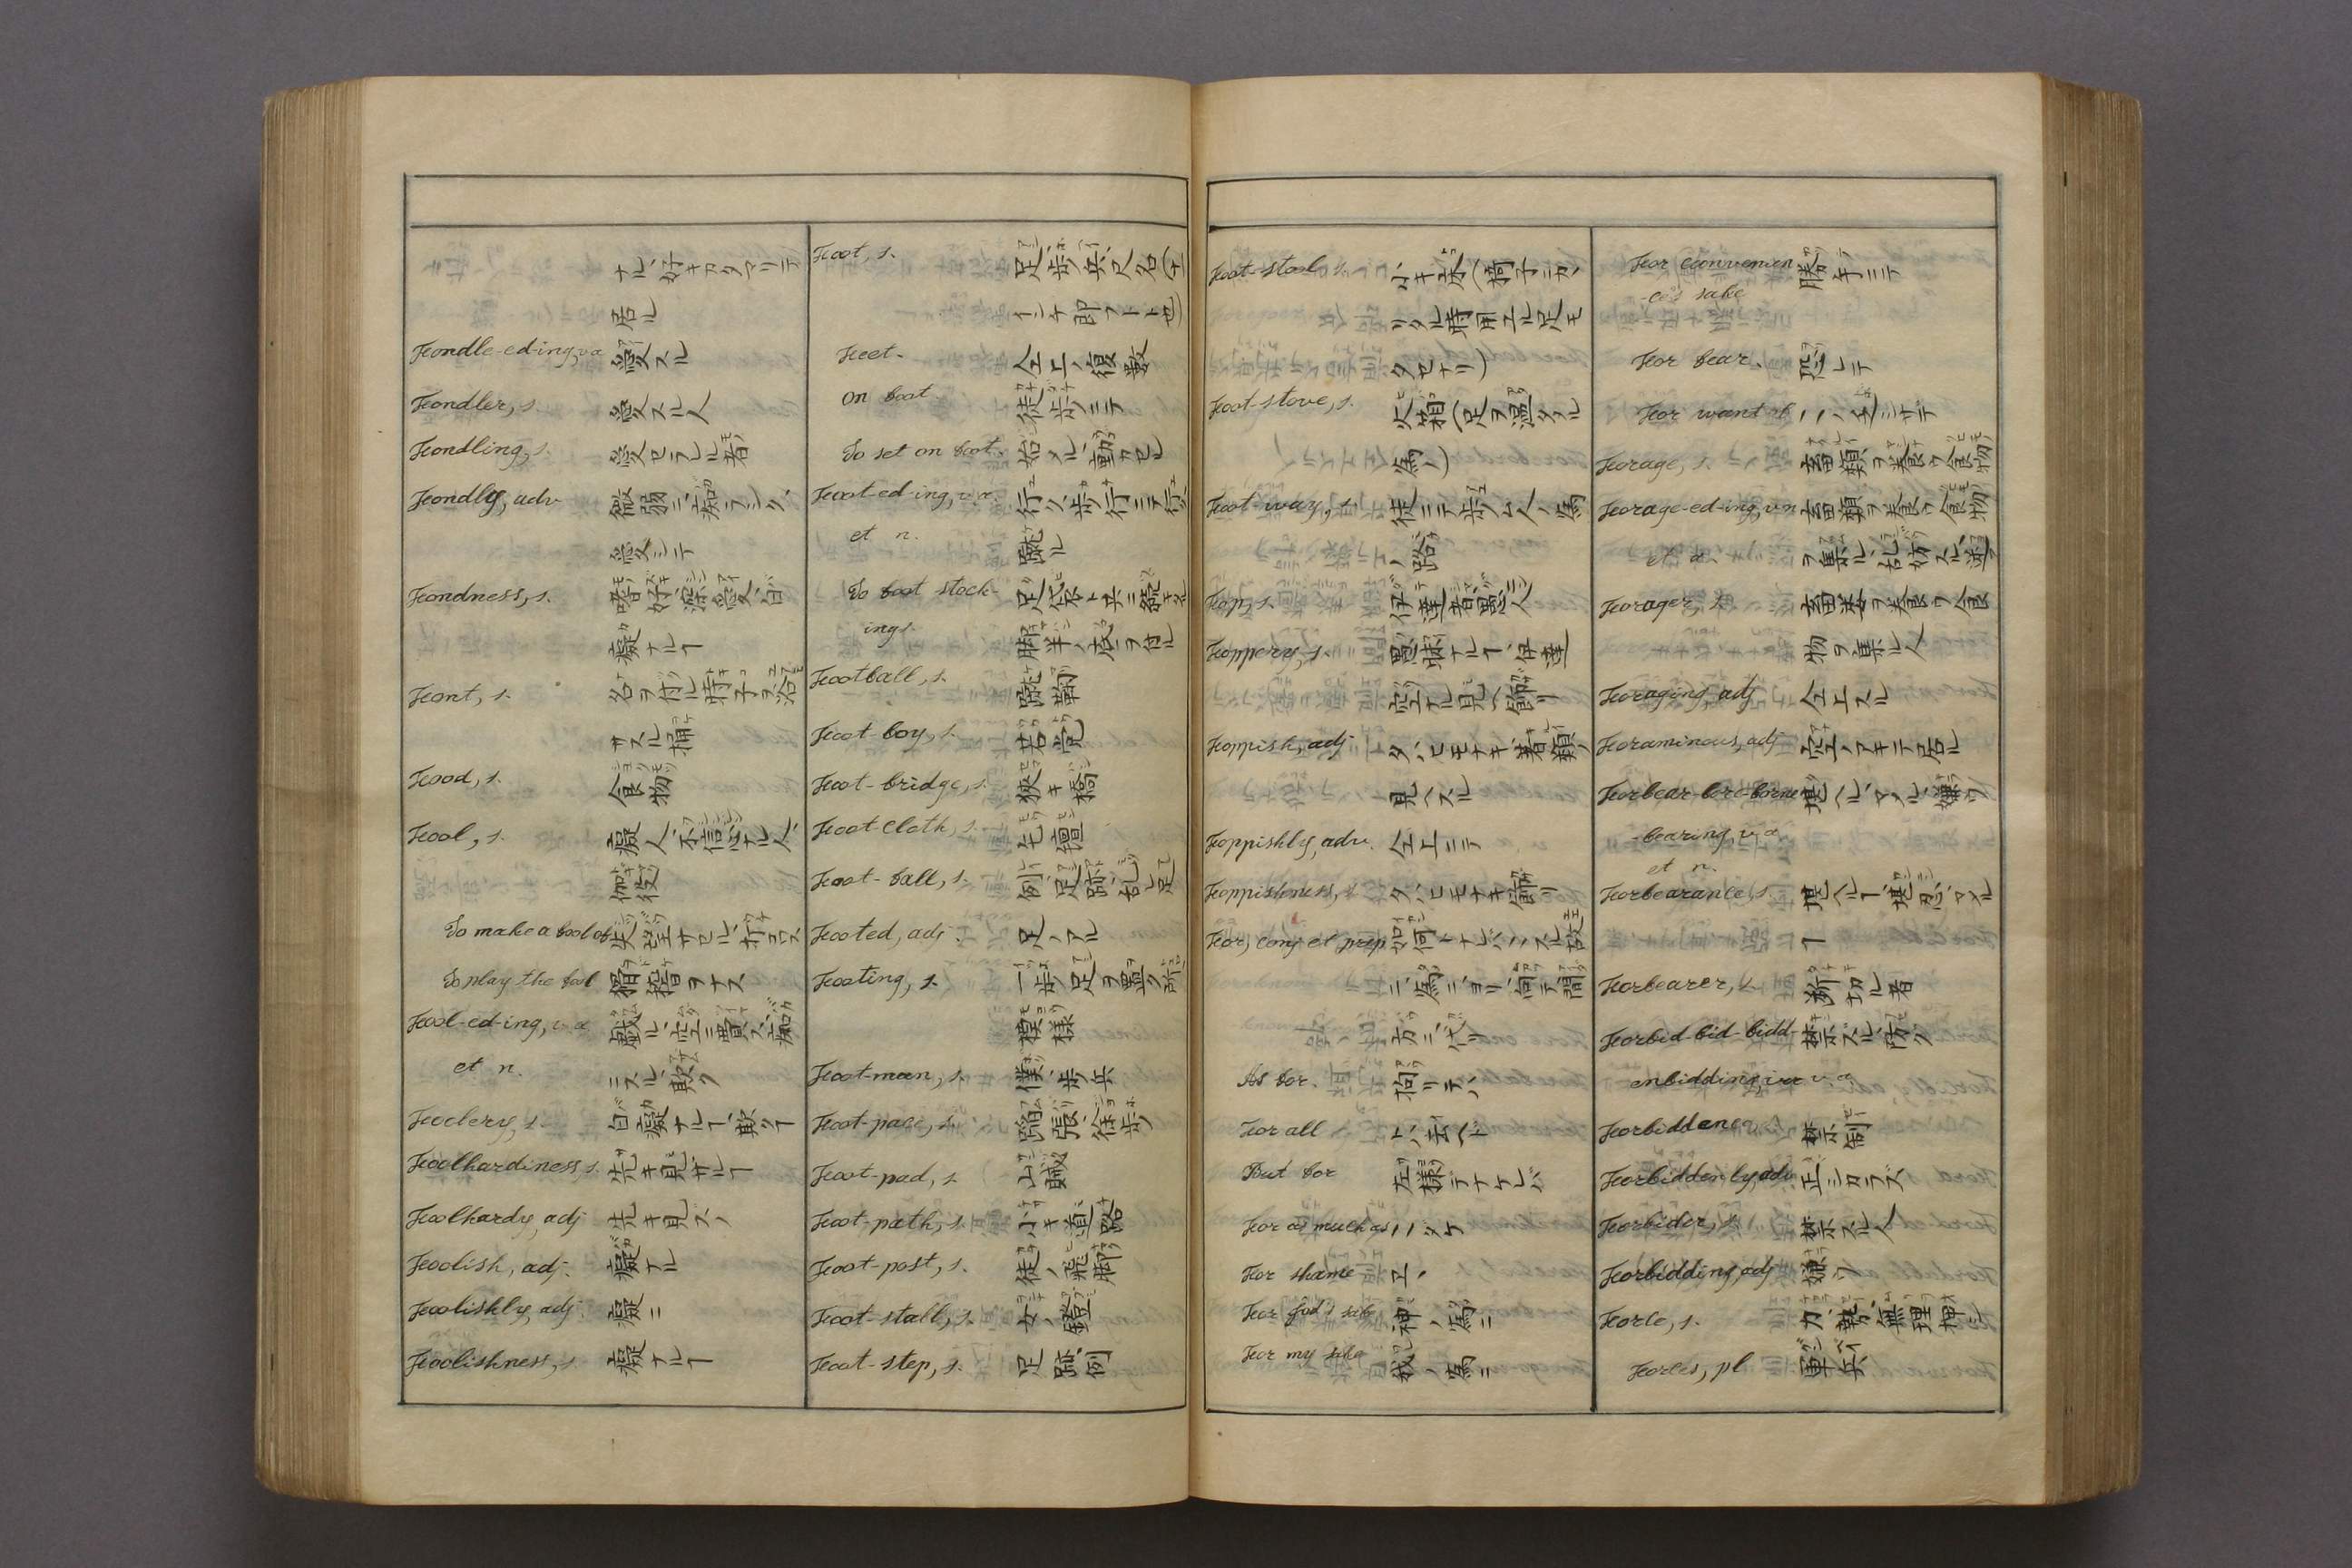 ナル、好キカタマリテ
居ル
Fondle-ed-ing, v.a. 愛スル
Fondler, s. 愛スル人
Fondling, s. 愛セラルヽ者
Fondly, adv. 微弱ニ、痴ラシク、
愛シテ
Fondness, s. 嗜好、深愛、白
癡ナルヿ
Font, s. 名ヲ付ル時子ヲ浴
サスル桶
Food, s. 食物
Fool, s. 癡人、不信心ナル人、
伽役
To make a fool of 失望サセル、
To play the fool 猾稽ヲナス
Fool-ed-ing, v.a. 戯ル、空ニ費ス、痴
et n. ニスル、欺ク
Foolery, s. 白癡ナルヿ、欺クヿ
Foolhardiness, s. 先キ見ザルヿ
Foolhardy, adj. 先キ見ズノ
Foolish, adj. 癡ナル
Foolishly, adj. 癡ニ
Foolishness, s. 癡ナルヿ
Foot, s. 足、歩、兵、尺名
Feet. 仝上ノ複数
On foot. 徒歩ニテ
To set on foot. 始メル、動カセル
Foot-ed-ing, v.a. 行ク、歩行ニテ行ク
et n. 蹴ル
To foot stock-
ings.
Football, s. 蹴鞠
Foot-boy, s. 若党
Foot-bridge, s. 狭キ橋
Foot-cloth, s. 毛氊
Foot-fall, s. 例、足跡、乱レ足
Footed, adj. 足ノアル
Footing, s. 一歩、足ヲ置ク所
模様
Foot-man, s. 僕、歩兵
Foot-pace, s. 徐歩
Foot-pad, s. 山賊
Foot-path, s. 小キ道路
Foot-post, s. 徒ノ飛脚
Foot-stall, s. 女ノ鐙
Foot-step, s. 足跡、例
Foot-stool, s. 小キ床(椅子ニカヽ
リタル時用エル足モ
タセナリ)
Foot-stove, s. 火箱(足ヲ温タル
為ノ)
Foot-way, s. 徒ニテ歩ム人ノ為
ノ路
Fop, s. 伊達者、愚人
Foppery, s. 愚昧ナルヿ、伊達
空ナル見ヘ、飾リ
Foppish, adj. タハヒモナキ、著類ノ
見ヘスル
Foppishly, adv. 仝上ニテ
Foppishness, s. タハヒモナキ飾リ
For, conj. et prep. 如何トナレバ、
ニ、為ニ、ヨリ、向テ、間
方ニ、代リ
As for. 拘リテハ
For all ト云ヘド
But for 左様デナケレバ
For as much as
For shame
For god's sake 神ノ為ニ
For my sake 我ノ為ニ
For convenien- 勝手ニテ
-ce's sake
For fear. 恐レテ
For want of
Forage, s. 畜類ヲ養ウ食物
Forage-ed-ing, v.n. 畜類ヲ養ウ食物
et a. ヲ集ル、乱妨スル、
Forager, s. 畜类ヲ養ウ食
物ヲ集ル人
Foraging, adj. 仝上スル
Foraminous, adj. 空ノアキテ居ル
Forbear-bore-borne 堪ヘル、ヤメル、嫌ウ
-bearing, v.a.
et n.
Forbearance, s. 堪ヘルヿ、堪忍、ヤメル
ヿ
Forbearer, s. 断切ル者
Forbid-bid-bidd- 禁ズル、防グ
enbidding, v.a.
Forbiddance, 禁制
Forbiddenly, adv. 正シカラズ
Forbider, s. 禁スル人
Forbidding, adj. 嫌ウ
Force, s. 力、勢、無理押シ
Forces, pl. 軍兵